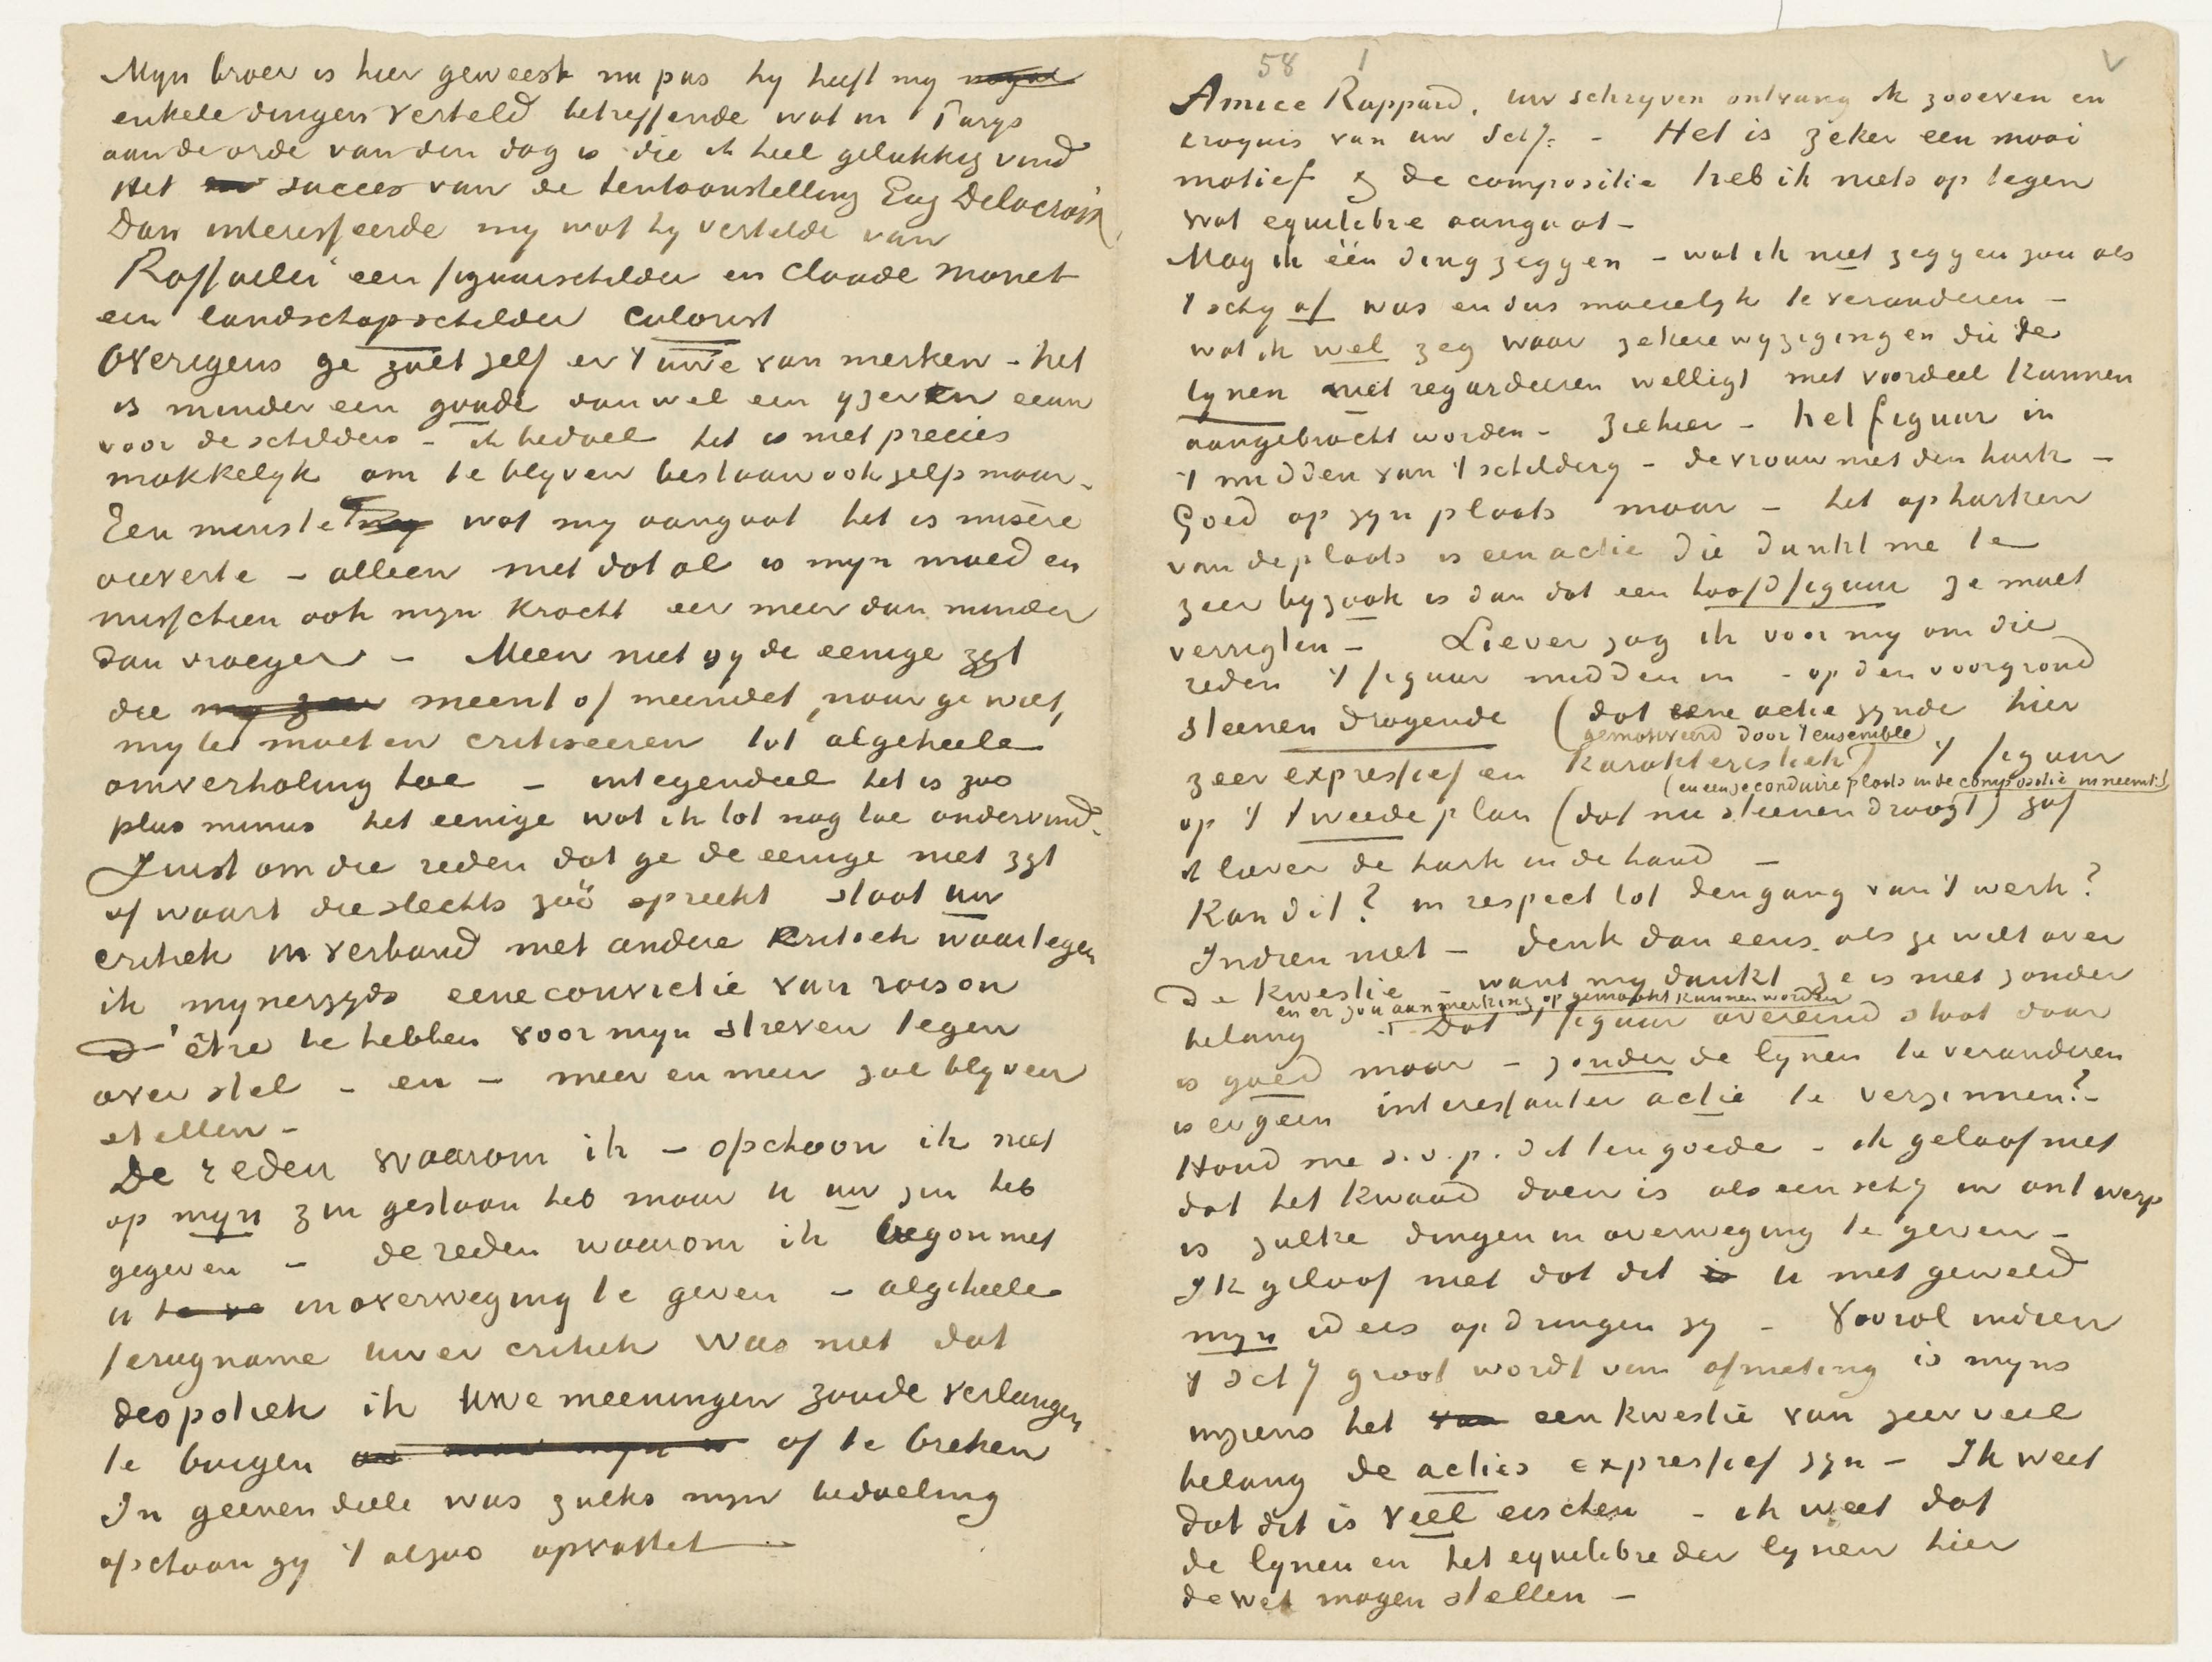 Mijn broer is hier geweest nu pas hij heeft mij nogal
enkele dingen verteld betreffende wat in Parijs
aan de orde van den dag is die ik heel gelukkig vind
Het succes van de tentoonstelling Eug Delacroix,
Dan interesseerde mij wat hij vertelde van
Raffaelli een figuurschilder en Claude Monet
een landschapschilder colorist
Overigens ge zult zelf er 't uwe van merken - het
is minder een goude dan wel een yzeren eeuw
voor de schilders - ik bedoel het is niet precies
makkelijk om te blijven bestaan ook zelfs maar.
Ten minste wat mij aangaat het is misère
ouverte - alleen met dat al is mijn moed en
misschien ook mijn kracht eer meer dan minder
dan vroeger - Meen niet gij de eenige zijt
die meent of meendet, naar ge wilt,
mij te moeten critiseeren tot algeheele
omverhaling toe - integendeel het is zoo
plus minus het eenige wat ik tot nog toe ondervind.
Juist om die reden dat ge de eenige niet zijt
of waart die slechts zóó spreekt staat uw
critiek in verband met andere kritiek waartegen
ik mijnerzijds eene convictie van raison
d'être te hebben voor mijn streven tegen
over stel - en - meer en meer zal blijven
stellen -
De reden waarom ik - ofschoon ik niet
op mijn zin gestaan heb maar u uw zin heb
gegeven - de reden waarom ik begon met
u in overweging te geven - algeheele
terugname uwer critiek was niet dat
despotiek ik uwe meeningen zoude verlangen
te buigen of te breken
In geenen deele was zulks mijn bedoeling
ofschoon gij 't alzoo opvattet -
58 1 V
Amice Rappard, uw schrijven ontvang ik zooeven en
croquis van uw schij. - Het is zeker een mooi
motief & de compositie heb ik niets op tegen
wat equilibre aangaat -
Mag ik één ding zeggen - wat ik niet zeggen zou als
't schij af was en dus moeielijk te veranderen -
wat ik wel zeg waar zekere wijzigingen die de
lijnen niet regardeeren welligt met voordeel kunnen
aangebracht worden - Ziehier - het figuur in
't midden van 't schilderij - de vrouw met den hark -
Goed op zijn plaats maar - het opharken
van de plaats is een actie die dunkt me te
zeer bijzaak is dan dat een hoofdfiguur ze moet
verrigten - Liever zag ik voor mij om die
reden 't figuur midden in - op den voorgrond
steenen dragende (dat eene actie zijnde hier
gemotiveerd door 't ensemble)
zeer expressief en karakteristiek) 't figuur
(en een secondaire plaats in de compositie inneemt)
op 't tweede plan (dat nu steenen draagt) gaf
ik liever de hark in de hand -
Kan dit? in respect tot den gang van 't werk?
Indien niet - denk dan eens als ge wilt over
de kwestie - want mij dunkt ze is niet zonder
en er zou aanmerking op gemaakt kunnen worden
belang. Dat 't figuur overeind staat daar
is goed maar - zonder de lijnen te veranderen
is er geen interessanter actie te verzinnen? -
Houd me s.v.p. dit ten goede - ik geloof niet
dat het kwaad doen is als een schij in ontwerp
is zulke dingen in overweging te geven -
Ik geloof niet dat dit is u met geweld
mijn idees opdringen zij - Vooral indien
't schij groot wordt van afmeting is mijns
inziens het een kwestie van zeer veel
belang de acties expressief zijn - Ik weet
dat dit is veel eischen - ik weet dat
de lijnen en het equilibre der lijnen hier
de wet mogen stellen -